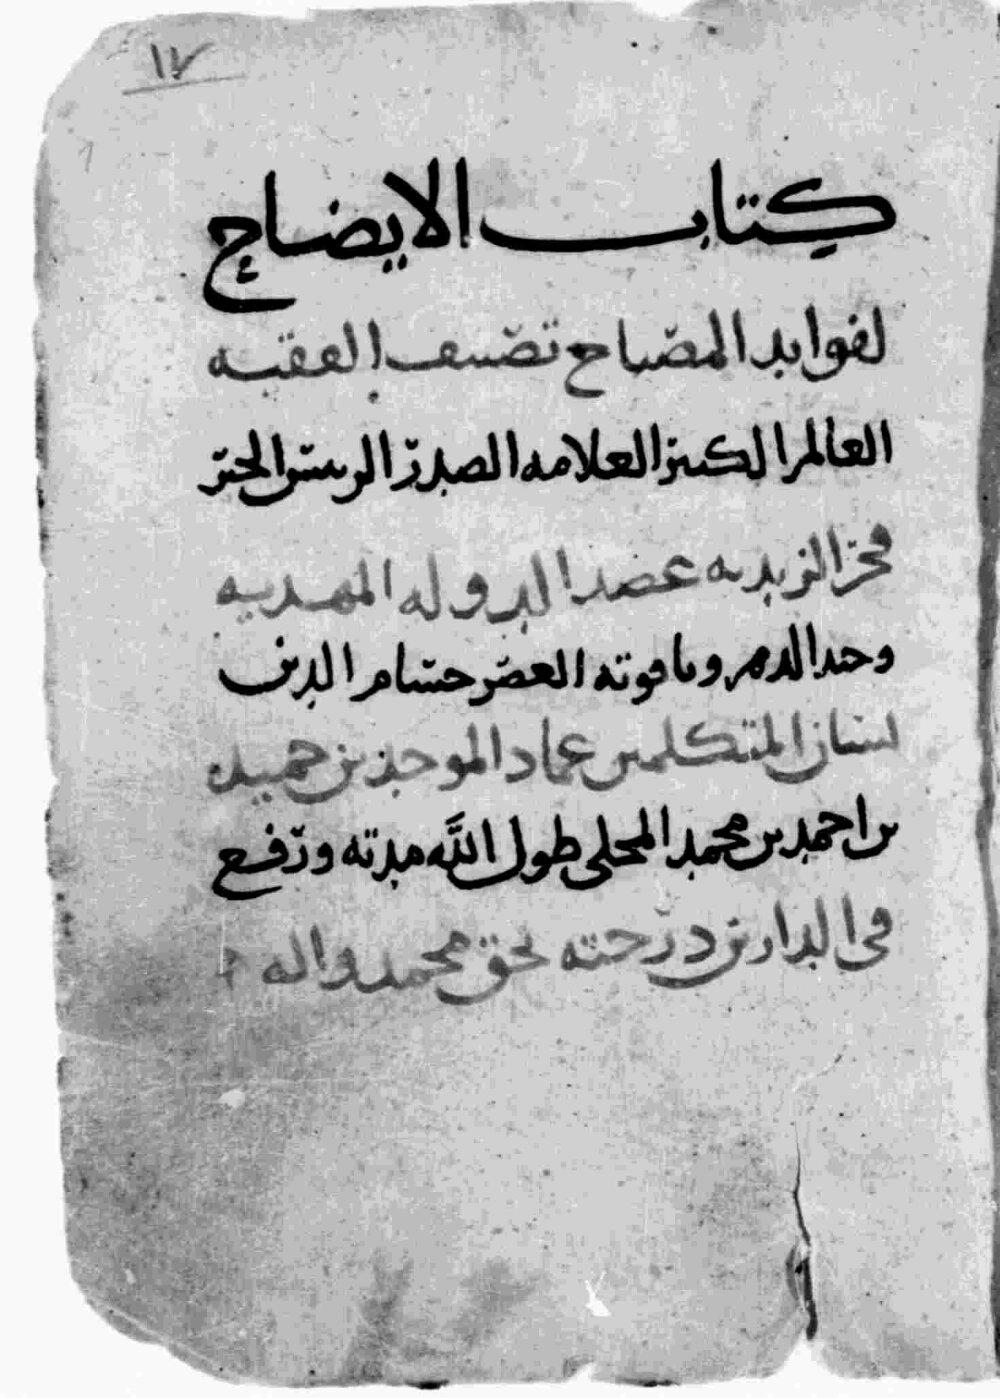 ١٧
كتاب الايضاح
لفوايد المصباح تصنيف الفقيه
العالم الكبير العلامه الصدر الرييس الحبر
فخر الزيديه عضد الدوله المهديه
وحيد الدهر وياقوته العصر حسام الدين
لسان المتكلمين عماد الموحدين حميد
بن احمد بن محمد المحلي طول اللّه مدته ورفع
في الدارين درجته بحق محمد واله